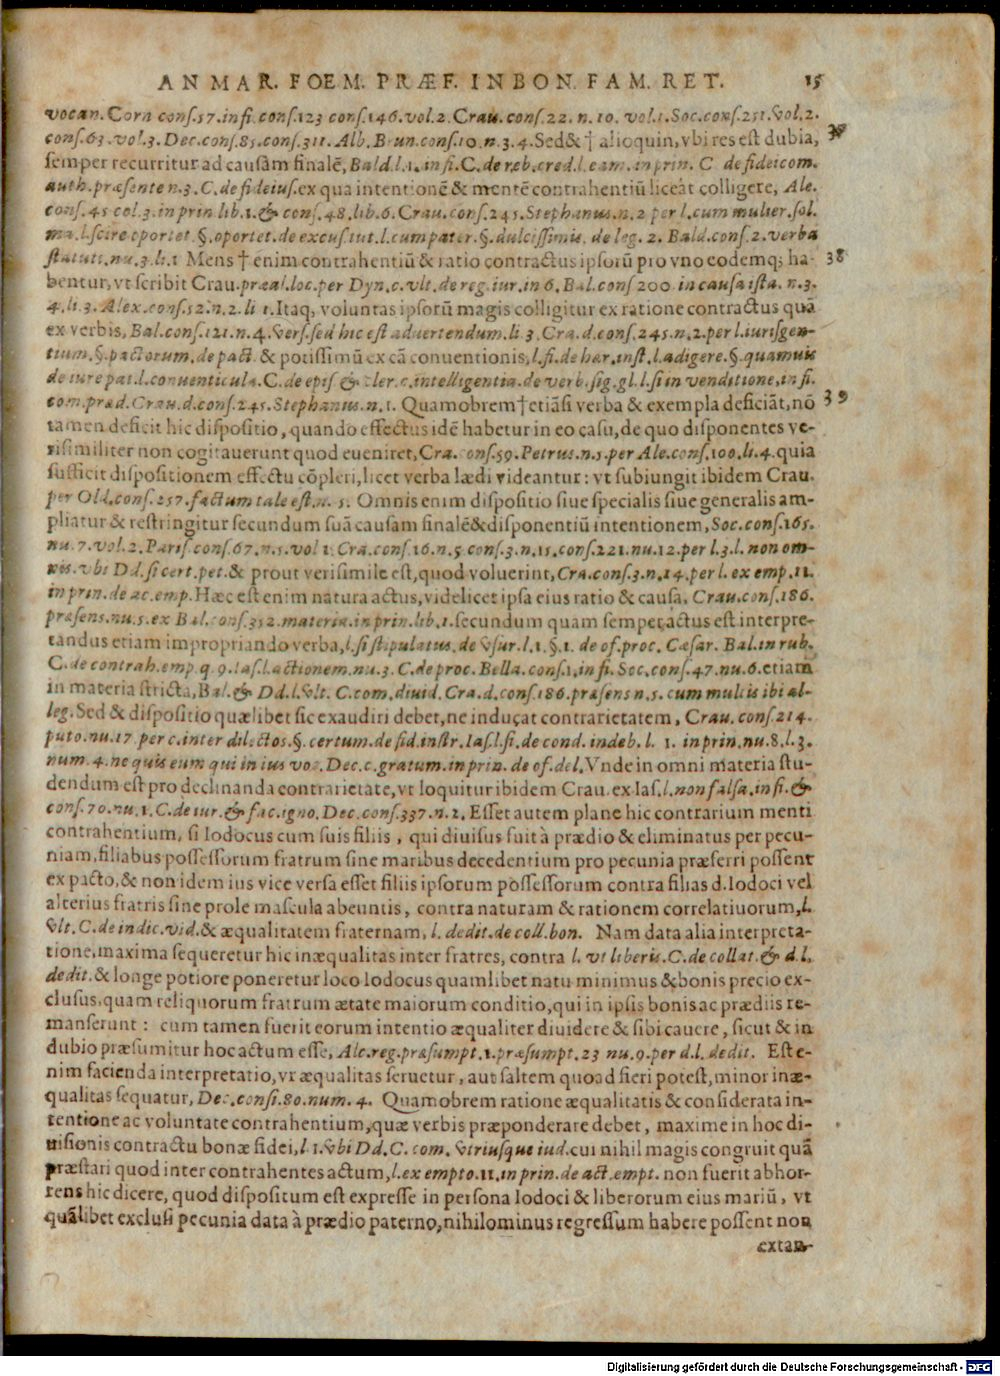 AN MAR. FOEM. PRÆF. IN BON. FAM. RET. 15
vocan. Corn conſ.57.infi.conſ.123 conſ.146.vol.2. Crau. conſ.22. n. 10. vol.1. Soc.conſ.251.vol.2.
conſ.63.vol.3. Dec.conſ.85.conſ.311. Alb. Brun.conſ.10.n.3.4. Sed & † alioquin, vbi res eſt dubia,
ſemper recurritur ad cauſam finalē, Bald.l.1. in fi. C. de reb. cred.l.eam. in prin. C de fideicom.
auth.præſente n.3. C. de fideiuſ. ex qua intentionē & mentē contrahentiū liceat colligere, Ale.
conſ.45 col.3. in prin lib.1. & conſ.48.lib.6. Crau.conſ.245. Stephanus.n.2 per l.cum mulier.ſol.
ma.l.ſcire oportet.§.oportet.de excuſ.tut.l.cum pater.§.dulciſſimis. de leg.2. Bald.conſ.2.verba
ſtatuti.nu.3.li.1 Mens † enim contrahentiū & ratio contractus ipſorū pro vno eodemq; ha- 38
bentur, vt ſcribit Crau. præal.loc.per Dyn.c.vlt.de reg.iur.in 6. Bal.conſ 200.in cauſa iſta.n.3.
4.li.3. Alex.conſ.52.n.2.li 1. Itaq, voluntas ipſorū magis colligitur ex ratione contractus quā
ex verbis, Bal.conſ.121.n.4. verſ.ſed hic eſt aduertendum.li.3. Cra.d.conſ.245.n.2.per l.iuriſgen-
tium.§.pactorum.de pact. & potiſſimū ex cā conuentionis, l.ſi.de hær.inſt.l.adigere.§.quamuis
de iure pat.l.conuenticula. C. de epiſ & cler.c.intelligentia.de verb.ſig.gl.l.ſi in venditione.in fi.
com.præd. Crau.d.conſ.245. Stephanus.n.1. Quamobrem † etiāſi verba & exempla deficiāt, nō 39
tamen deficit hic diſpoſitio, quando effectus idē habetur in eo caſu, de quo diſponentes ve-
riſimiliter non cogitauerunt quod eueniret, Cra.conſ.59. Petrus.n.5.per Ale.conſ.100.li.4. quia
ſufficit diſpoſitionem effectu cōpleri, licet verba lædi videantur: vt ſubiungit ibidem Crau.
per Old.conſ.257.factum tale eſt.n. 5. Omnis enim diſpoſitio ſiue ſpecialis ſiue generalis am-
pliatur & reſtringitur ſecundum ſuā cauſam finalē & diſponentiū intentionem, Soc.conſ.165.
nu.7.vol.2. Pariſ.conſ.67.n.5.vol 1. Cra.conſ.16.n.5 conſ.3.n.15.conſ.221.nu.12.per l.3.l. non om-
nis.vbi Dd.ſi cert.pet. & prout veriſimile eſt, quod voluerint, Cra.conſ.3.n.14.per l. ex emp.11.
in prin.de ac.emp. Hæc eſt enim natura actus, videlicet ipſa eius ratio & cauſa. Crau.conſ.186.
præſens.nu.5.ex Bal.conſ.352.materia.in prin.lib.1. ſecundum quam ſemper actus eſt interpre-
tandus etiam impropriando verba, l.ſi ſtipulatus.de vſur.l.1.§.1. de of.proc. Cæſar. Bal.in rub.
C. de contrah.emp.q.9. Iaſ.l.actionem.nu.3. C. de proc. Bella.conſ.1.in fi. Soc.conſ.47.nu.6. etiam
in materia ſtricta, Bal. & Dd.l.vlt. C. com.diuid. Cra.d.conſ.186.præſens n.5. cum multis ibi al-
leg. Sed & diſpoſitio quælibet ſic exaudiri debet, ne inducat contrarietatem, Crau. conſ.214.
puto.nu.17 per c.inter dilectos.§. certum.de fid.inſtr. Iaſ.l.ſi.de cond. indeb. l. 1. in prin.nu.8.l.3.
num.4.ne quis eum qui in ius voc. Dec.c.gratum.in prin. de of.del. Vnde in omni materia ſtu-
dendum eſt pro declinanda contrarietate, vt loquitur ibidem Crau. ex Iaſ. l. non falſa.in fi. &
conſ.70.nu.1. C. de iur. & fac.igno. Dec.conſ.337.n.2. Eſſet autem plane hic contrarium menti
contrahentium, ſi Iodocus cum ſuis filiis, qui diuiſus fuit à prædio & eliminatus per pecu-
niam, filiabus poſſeſſorum fratrum ſine maribus decedentium pro pecunia præferri poſſent
ex pacto, & non idem ius vice verſa eſſet filiis ipſorum poſſeſſorum contra filias d. Iodoci vel
alterius fratris ſine prole maſcula abeuntis, contra naturam & rationem correlatiuorum, l.
vlt. C. de indic.vid. & æqualitatem fraternam, l. dedit.de coll.bon. Nam data alia interpreta-
tione, maxima ſequeretur hic inæqualitas inter fratres, contra l. vt liberis. C. de collat. & d.l.
dedit. & longe potiore poneretur loco Iodocus quamlibet natu minimus & bonis precio ex-
cluſus, quam reliquorum fratrum ætate maiorum conditio, qui in ipſis bonis ac prædiis re-
manſerunt: cum tamen fuerit eorum intentio æqualiter diuidere & ſibi cauere, ſicut & in
dubio præſumitur hoc actum eſſe, Alc.reg.præſumpt.1.præſumpt.23 nu.9.per d.l. dedit. Eſt e-
nim facienda interpretatio, vt æqualitas ſeruetur, aut ſaltem quoad fieri poteſt, minor inæ-
qualitas ſequatur, Dec.conſi.80.num.4. Quamobrem ratione æqualitatis & conſiderata in-
tentione ac voluntate contrahentium, quæ verbis præponderare debet, maxime in hoc di-
uiſionis contractu bonæ fidei, l.1.vbi Dd. C. com. vtriuſque iud. cui nihil magis congruit quā
præſtari quod inter contrahentes actum, l.ex empto.11.in prin.de act.empt. non fuerit abhor-
rens hic dicere, quod diſpoſitum eſt expreſſe in perſona Iodoci & liberorum eius mariū, vt
quālibet excluſi pecunia data à prædio paterno, nihilominus regreſſum habere poſſent non
extan-
Digitalisierung gefördert durch die Deutsche Forschungsgemeinschaft - DFG